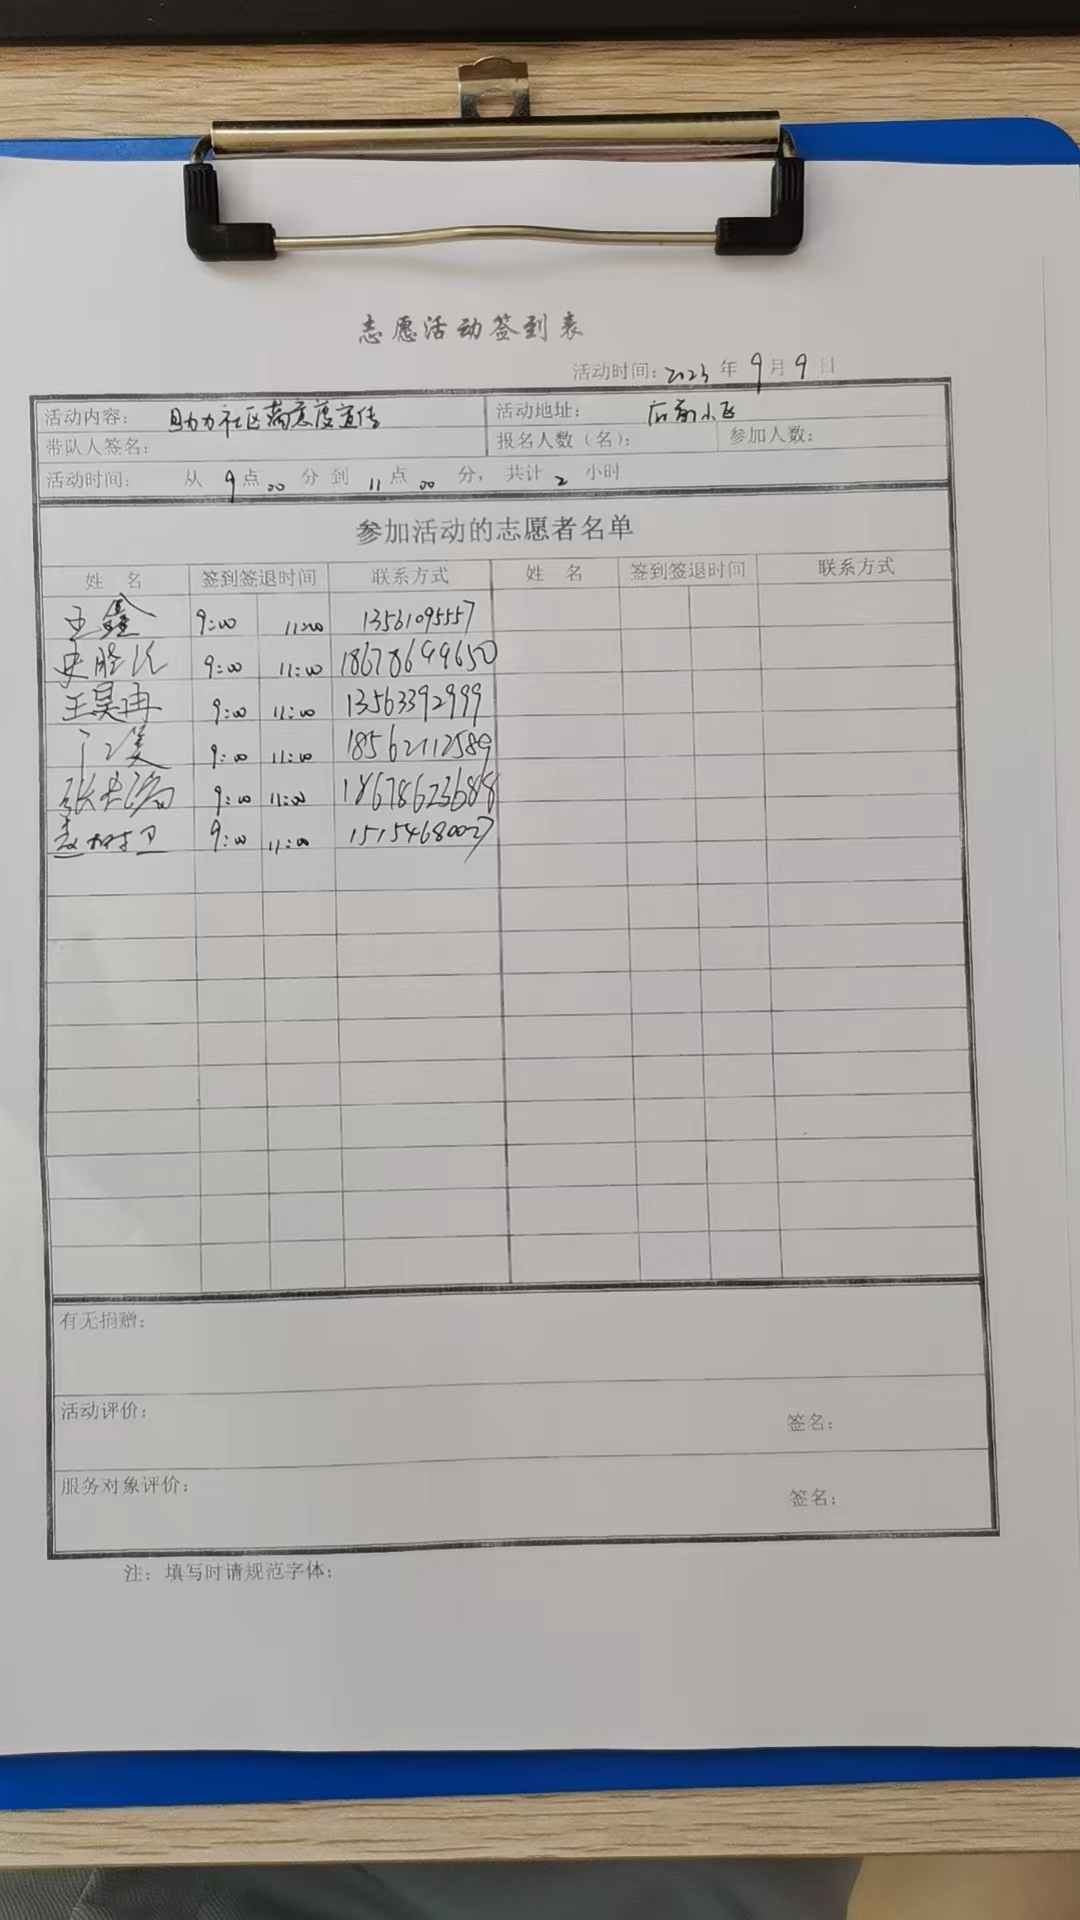 志愿活动签到表
活动时间：2023年9月9日
活动内容： 助力社区满意度宣传 活动地址： 后前小区
带队人签名： 报名人数（名）： 参加人数：
活动时间： 从9点00分到11点00分，共计2小时
参加活动的志愿者名单
姓 名 签到签退时间 联系方式 姓 名 签到签退时间 联系方式
王鑫 9:00 11:00 13561095557
史 9:00 11:00 18678699650
王昊冉 9:00 11:00 13563392999
9:00 11:00 18562112589
张 9:00 11:00 18678623688
赵树卫 9:00 11:00 15154680027
有无捐赠：
活动评价： 签名：
服务对象评价： 签名：
注：填写时请规范字体；